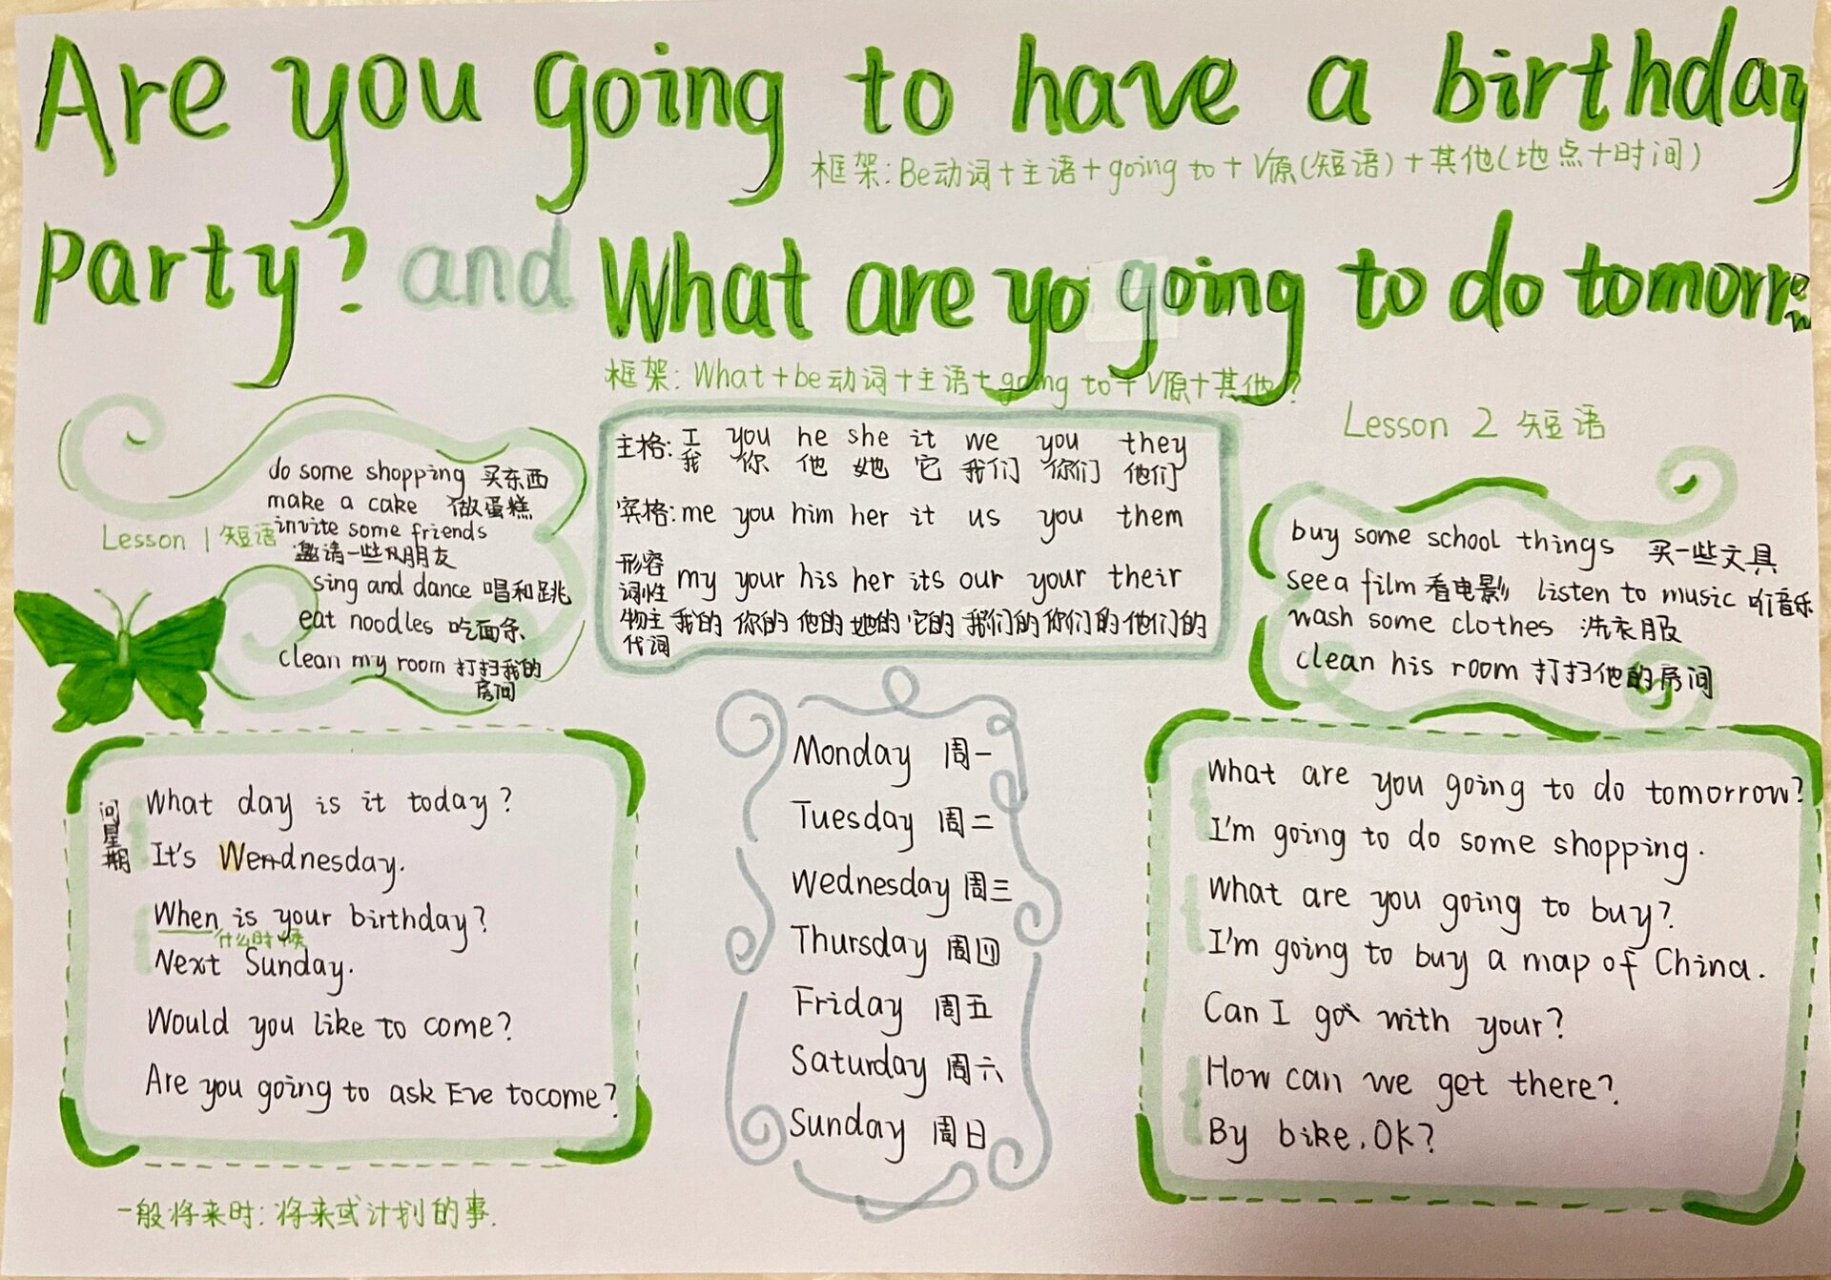 Are you going to have a birthday
框架:Be动词+主语+going to+V原(短语)+其他(地点+时间)
Party? and What are yo going to do tomorrow
框架: What+be动词+主语+going to+V原+其他?
Lesson 1 短语
do some shopping 买东西
make a cake 做蛋糕
invite some friends
邀请一些朋友
sing and dance 唱和跳
eat noodles 吃面条
clean my room 打扫我的
房间
主格: I you he she it we you they
我 你 他 她 它 我们 你们 他们
宾格: me you him her it us you them
形容
词性 my your his her its our your their
物主 我的 你的 他的 她的 它的 我们的 你们的 他们的
代词
Lesson 2 短语
buy some school things 买一些文具
see a film 看电影 listen to music 听音乐
wash some clothes 洗衣服
clean his room 打扫他的房间
问星期
What day is it today?
It's Wendnesday.
When is your birthday?
什么时候
Next Sunday.
Would you like to come?
Are you going to ask Eve tocome?
Monday 周一
Tuesday 周二
Wednesday 周三
Thursday 周四
Friday 周五
Saturday 周六
Sunday 周日
What are you going to do tomorrow?
I'm going to do some shopping.
What are you going to buy?
I'm going to buy a map of China.
Can I go with your?
How can we get there?
By bike, OK?
一般将来时: 将来或计划的事.